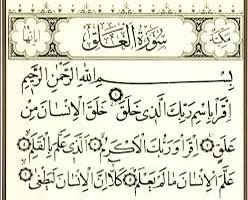 مكية سورة العلق آياتها
بسم الله الرحمن الرحيم
اقرأ باسم ربك الذي خلق ١ خلق الإنسان من
علق ٢ اقرأ وربك الأكرم ٣ الذي علم بالقلم ٤
علم الإنسان ما لم يعلم ٥ كلا إن الإنسان ليطغى ٦